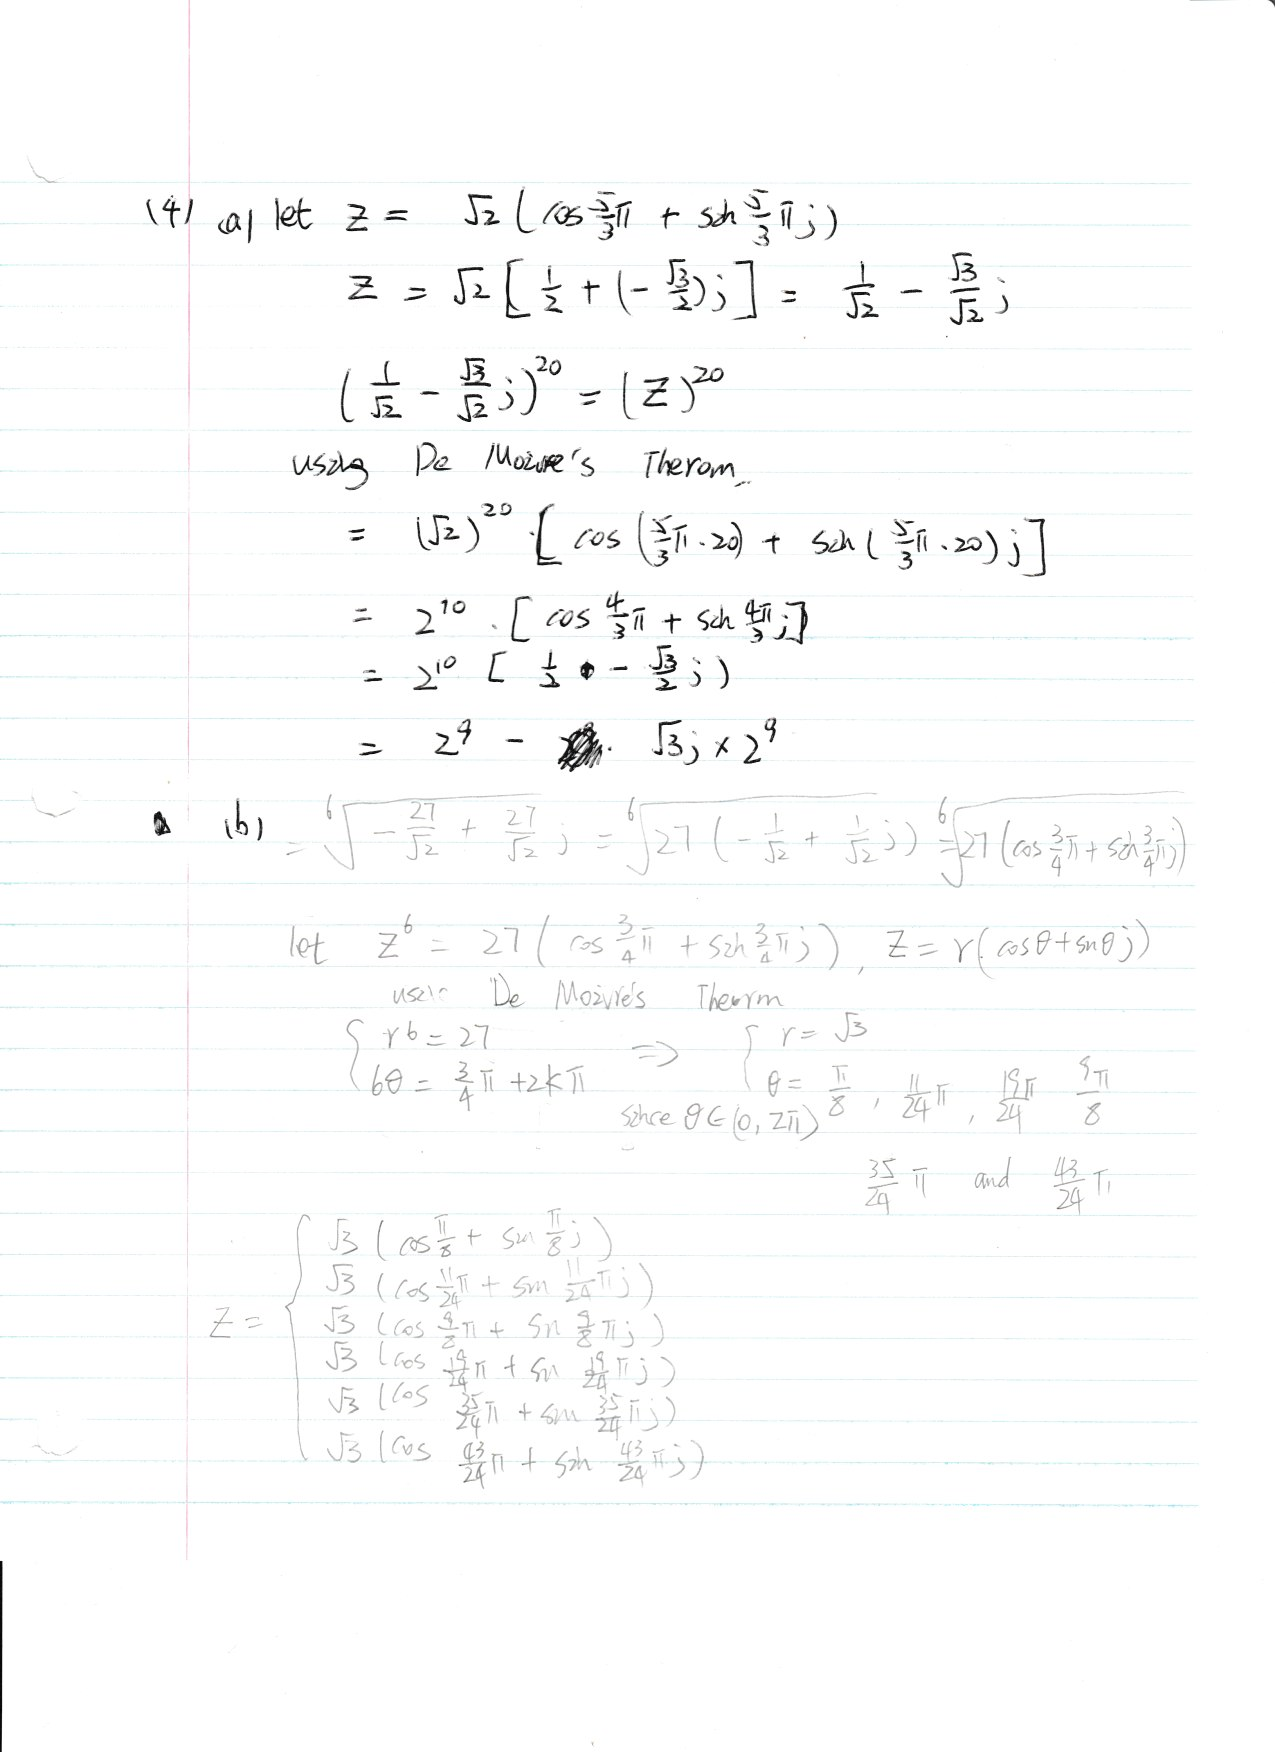 (4) (a) let z = √2 ( cos 5/3 π + sin 5/3 π j )
z = √2 [ 1/2 + (- √3/2) j ] = 1/√2 - √3/√2 j
( 1/√2 - √3/√2 j )^20 = ( z )^20
using De Moivre's Therom
= (√2)^20 · [ cos ( 5/3 π · 20) + sin ( 5/3 π · 20) j ]
= 2^10 · [ cos 4/3 π + sin 4π/3 j ]
= 2^10 [ 1/2 - √3/2 j )
= 2^9 - √3 j × 2^9
(b) = ⁶√(- 27/√2 + 27/√2 j) = ⁶√(27 (- 1/√2 + 1/√2 j)) = ⁶√(27 (cos 3/4 π + sin 3/4 π j))
let z^6 = 27 ( cos 3/4 π + sin 3/4 π j ), z = r ( cos θ + sin θ j )
using De Moivre's Theorm
{ r^6 = 27 ⇒ { r = √3
6θ = 3/4 π + 2kπ θ = π/8 , 11/24 π , 19π/24 9π/8
since θ ∈ (0, 2π)
35/24 π and 43/24 π
z = { √3 ( cos π/8 + sin π/8 j )
√3 ( cos 11/24 π + sin 11/24 π j )
√3 ( cos 9/8 π + sin 9/8 π j )
√3 ( cos 19/24 π + sin 19/24 π j )
√3 ( cos 35/24 π + sin 35/24 π j )
√3 ( cos 43/24 π + sin 43/24 π j )